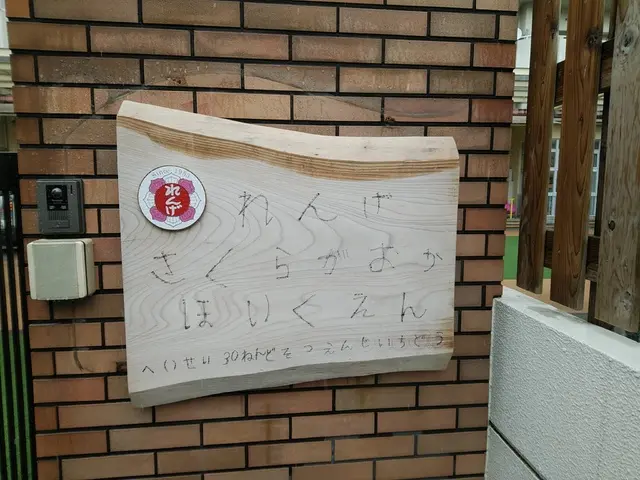 れんげ
れんげ
さくらがおか
ほいくえん
へいせい30ねんどそつえんじいちどう